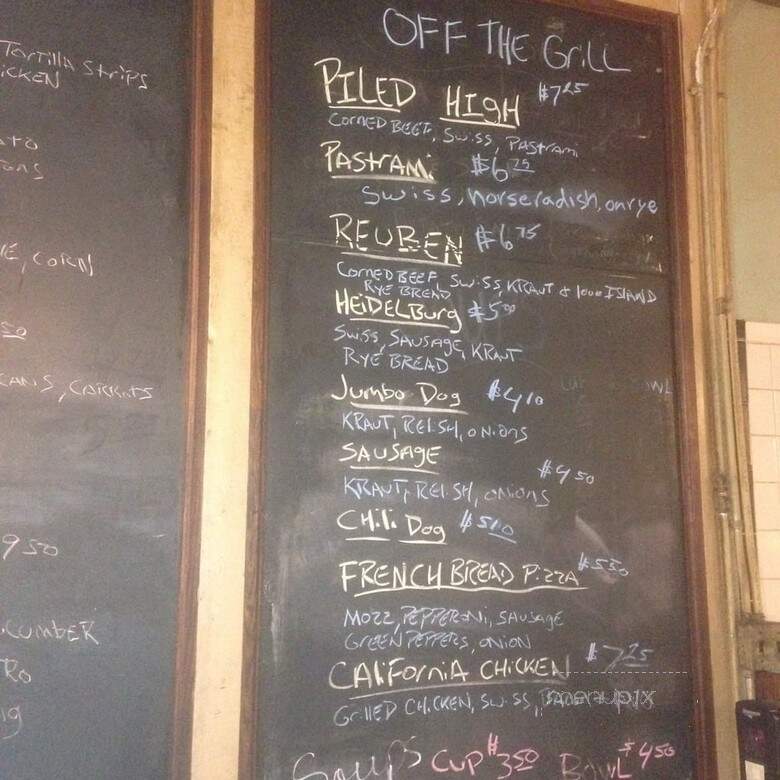 Tortilla Strips
ICKEN
E, CORN
50
CANS, CARROTS
950
CUMBER
RO
OFF THE GRILL
PILED HIGH $7.25
CORNED BEEF, SWISS, PASTRAMI
PASTRAMI $6 75
Swiss, horseradish, on rye
REUBEN $6 75
CORNED BEEF, SWISS, KRAUT & 1000 ISLAND
RYE BREAD
HEIDELBURG $5 00
SWISS, SAUSAGE, KRAUT
RYE BREAD
JUMBO DOG $4 10
KRAUT, RELISH, ONIONS
SAUSAGE $4 50
KRAUT, RELISH, ONIONS
CHILI DOG $5 10
FRENCH BREAD PIZZA $5 50
MOZZ, PEPPERONI, SAUSAGE
GREEN PEPPERS, ONION
CALIFORNIA CHICKEN $7 25
GRILLED CHICKEN, SWISS,
menupix
Soups CUP $3 50 BOWL $4 50